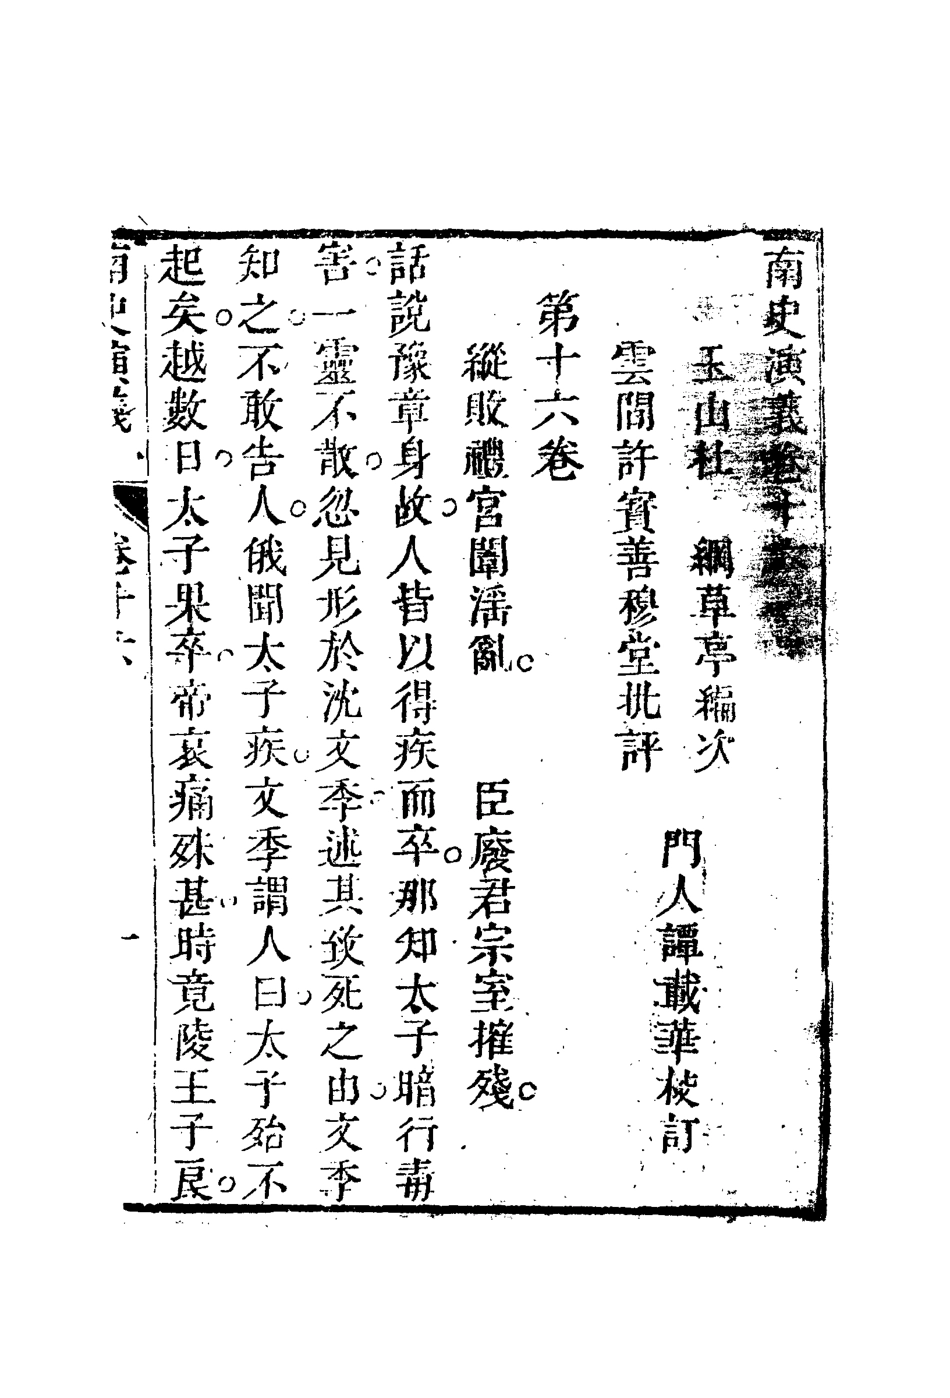 南史演義卷十六
玉山杜　綱草亭編次
雲間許寶善穆堂批評
門人譚載華校訂
第十六卷
縱敗禮宮闈淫亂。　臣廢君宗室摧殘。
話說豫章身故。人皆以得疾而卒。那知太子暗行毒
害。一靈不散。忽見形於沈文季。述其致死之由。文季
知之。不敢告人。俄聞太子疾。文季謂人曰。太子殆不
起矣。越數日。太子果卒。帝哀痛殊甚。時竟陵王子良。
南史演義
卷十六
一